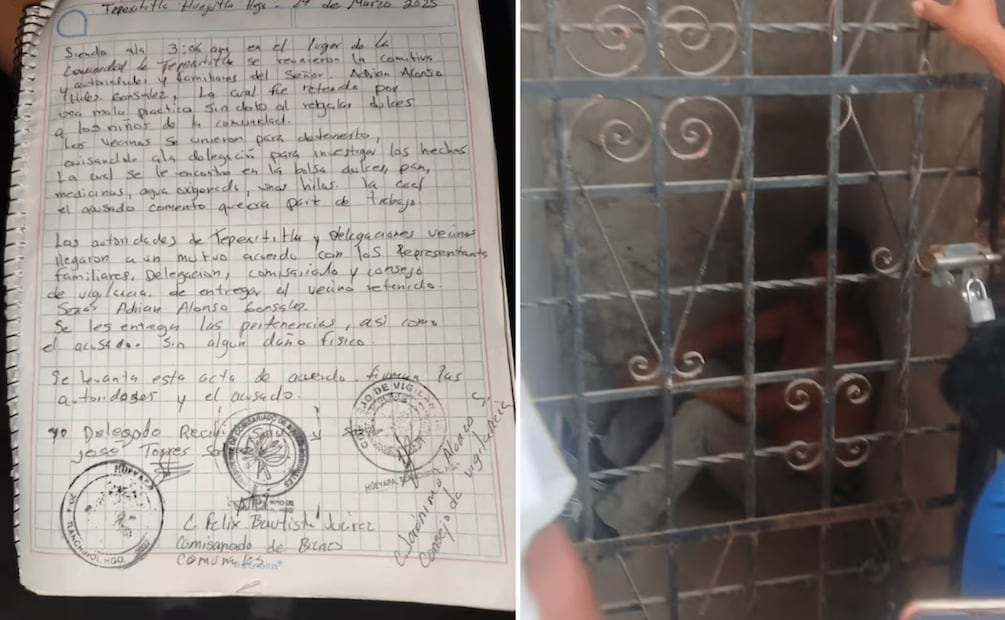 Tepexititla Huejutla Hgo. de Marzo 2025
Siendo ala 3:06 am en el lugar de la
comunidad de Tepexititla se reunieron la comitiva
y autoridades y familiares del Señor Adrian Alonso
Gonsalez, La cual fue retenida por
una mala practica sin dato al regalar dulces
a los niños de la comunidad.
Los vecinos se unieron para detenerlo,
avisandole ala delegación para investigar los hechos.
La cual se le encontro en la bolsa dulces, pan,
medicinas, agua oxigenada, unas hilas. la cual
el acusado comento que era part de trabajo.
Las autoridades de Tepexititla y delegaciones vecinas
llegaron a un mutuo acuerdo con los Representants
familiares, Delegacion, comisariado y consejo
de vigilacia. de entregar el vecino retenido.
Señor Adrian Alonso Gonsalez.
Se les entregan las pertenencias, asi como
el acusado. Sin algun daño fisico.
Se levanta esta acta de acuerdo. firman las
autoridades y el acusado.
yo Delegado
José Torres
HUEYAPA
TLANCHINOL, HGO.
C Felix Bautista
Comisariado de Bienes
COMUNALES
HUEYAPA, HGO.
Consejo de vigilancia